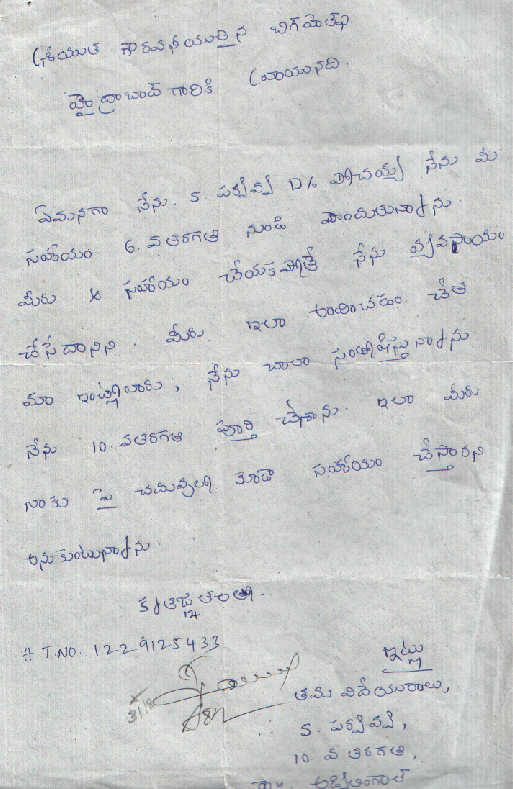 శ్రీయుత గౌరవనీయులైన బిగ్‌హెల్ప్
హైద్రాబాద్ గారికి వ్రాయునది.
ఏమనగా నేను. S. పద్మ D/o పోచయ్య నేను మీ
సహాయం 6. వ తరగతి నుండి పొందుతున్నాను
మీరు సహాయం చేయకపోతే నేను వ్యవసాయం
చేసేదానిని. మీరు ఇలా చేత
మా ఇంట్లోవారు, నేను చాలా సంతోషిస్తున్నాను
నేను 10. వ తరగతి పూర్తి చేశాను. ఇలా మీరు
నాకు పై చదువులకు కూడా సహాయం చేస్తారని
అనుకుంటున్నాను.
కృతజ్ఞతలతో.
# T.NO. 1229125433
ఇట్లు
తమ విదేయురాలు,
S. పద్మ,
10 వ తరగతి,